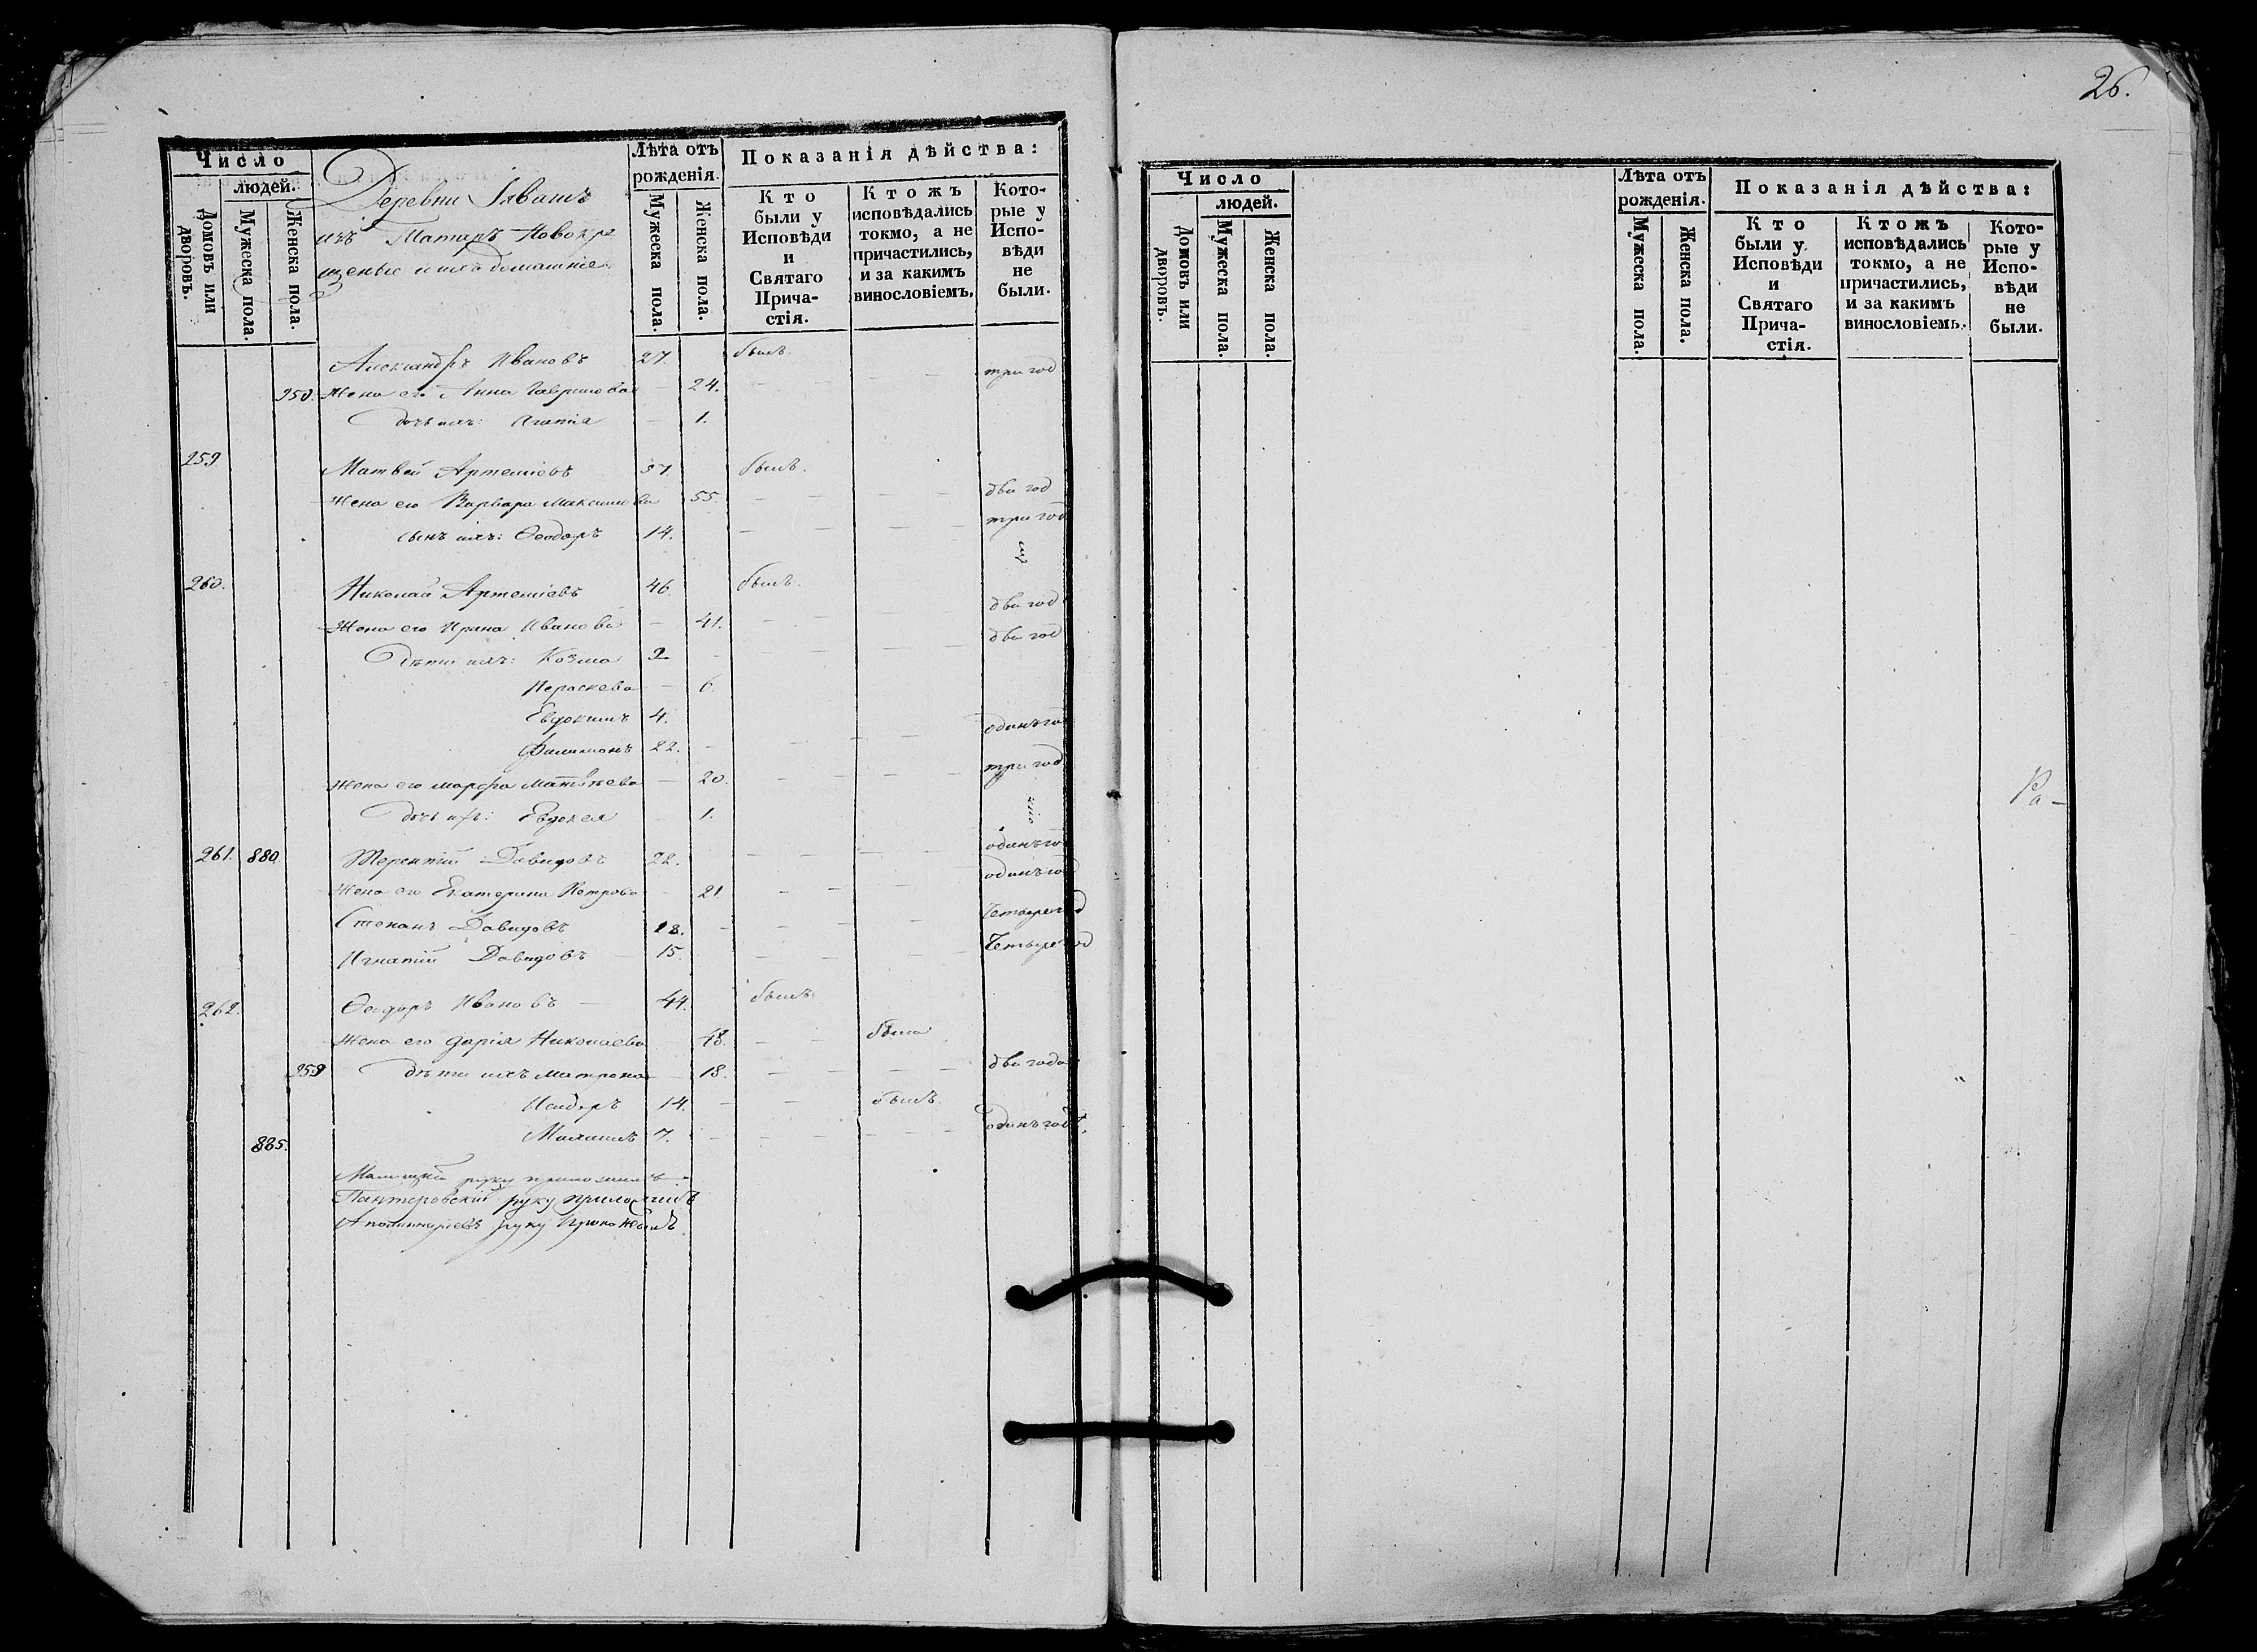 Число
людей.
Домовъ или дворовъ.
Мужеска пола.
Женска пола.
Деревни
изъ Татаръ Новокре
щеные и ихъ домашніе
Лѣта отъ рожденія.
Мужеска пола.
Женска пола.
Показанія дѣйства:
Кто были у Исповѣди и Святаго Прича-стія.
Ктожъ исповѣдались токмо, а не причастились, и за какимъ винословіемъ.
Кото-рые у Испо-вѣди не были.
Александръ Ивановъ 27. былъ.
950. Жена его Анна Гаврилова — 24. — — — три год
дочь ихъ: Агапія — 1.
259 Матвей Артеміевъ 57. былъ.
Жена его Варвара Максимова 55. — — — — два год
сынъ ихъ: Ѳеодоръ 14. — — — три год
260. Николай Артеміевъ 46. былъ.
Жена его Ирина Иванова — 41. — — два год
Дѣти ихъ: Козма 9 — — — — два год
Параскева — 6.
Евдокимъ 4.
Филимонъ 22. — — — — одинъ го
Жена его Марфа Матвѣева — 20. — — — — три год
дочь ихъ: Евдокея — 1.
261. 880. Терентій Давидовъ 22. — — — — одинъ го
Жена его Екатерина Петрова — 21 — — — — одинъ го
Степанъ Давидовъ 18. — — — — Четыре год
Игнатій Давидовъ — 15. — — — Четыре год
262. Ѳеодоръ Ивановъ — 44. былъ
Жена его Дарія Николаева 48. — — была
959 дѣти ихъ Матрона — 18. — — — — два года
Исидоръ 14. — — былъ.
885. Михаилъ 7. — — — — — одинъ годъ.
руку приложилъ
Пантеровскій руку приложилъ
Аполинаріевъ руку приложилъ
26.
Число
людей.
Домовъ или дворовъ.
Мужеска пола.
Женска пола.
Лѣта отъ рожденія.
Мужеска пола.
Женска пола.
Показанія дѣйства:
Кто были у Исповѣди и Святаго Прича-стія.
Ктожъ исповѣдались токмо, а не причастились, и за какимъ винословіемъ.
Кото-рые у Испо-вѣди не были.
Ра-